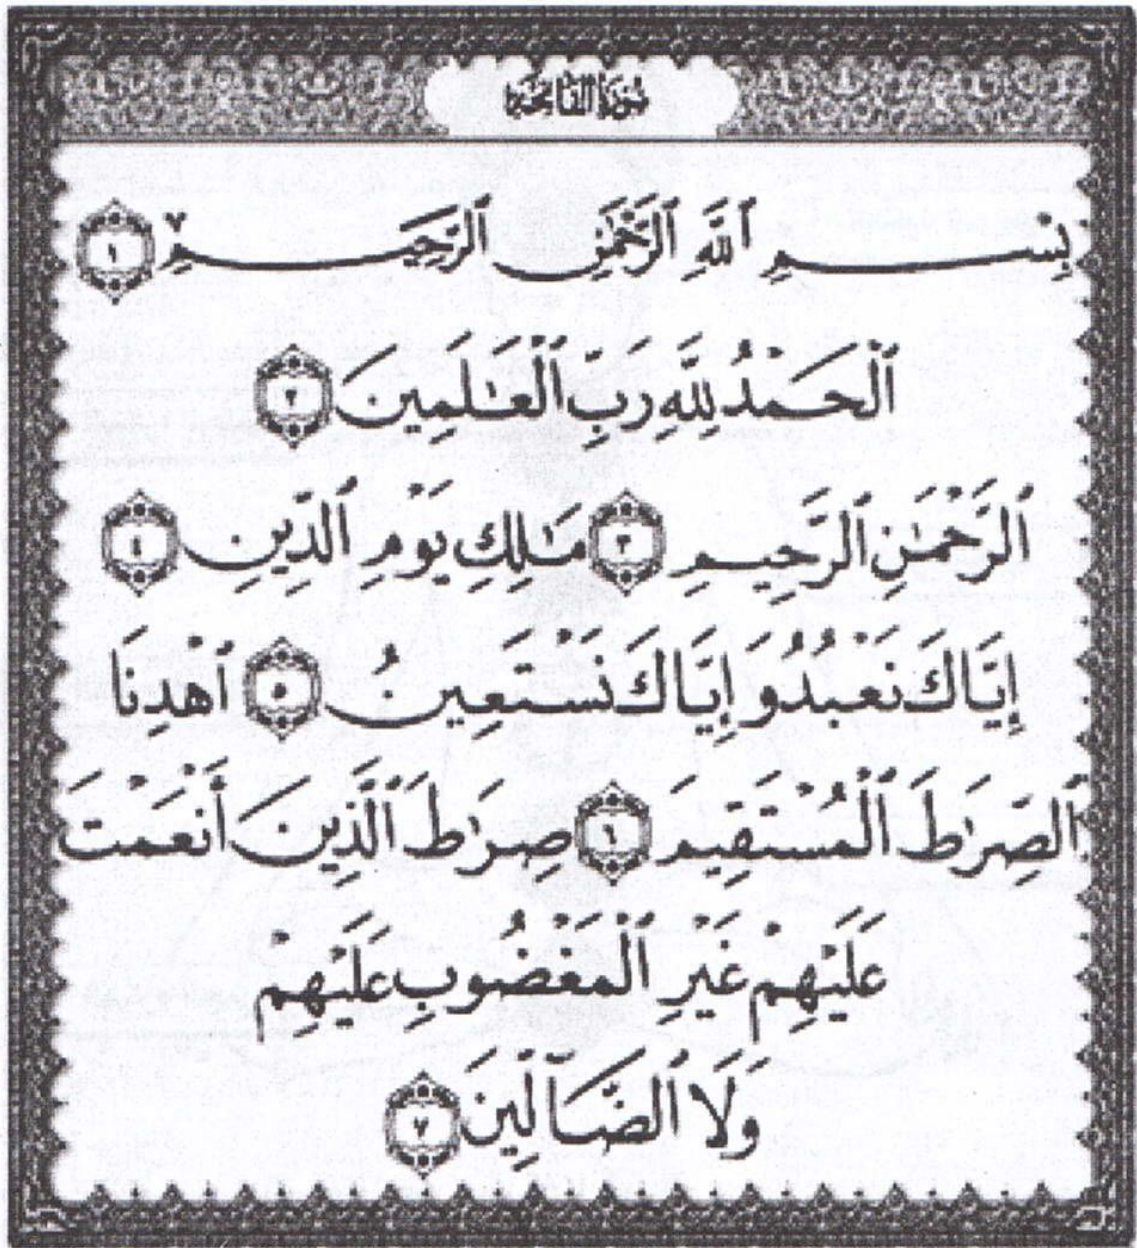 سورة الفاتحة
بِسْمِ ٱللَّهِ ٱلرَّحْمَٰنِ ٱلرَّحِيمِ ٧ ١
ٱلْحَمْدُ لِلَّهِ رَبِّ ٱلْعَٰلَمِينَ ٢
ٱلرَّحْمَٰنِ ٱلرَّحِيمِ ٣ مَٰلِكِ يَوْمِ ٱلدِّينِ ٤
إِيَّاكَ نَعْبُدُ وَإِيَّاكَ نَسْتَعِينُ ٥ ٱهْدِنَا
ٱلصِّرَٰطَ ٱلْمُسْتَقِيمَ ٦ صِرَٰطَ ٱلَّذِينَ أَنْعَمْتَ
عَلَيْهِمْ غَيْرِ ٱلْمَغْضُوبِ عَلَيْهِمْ
وَلَا ٱلضَّآلِّينَ ٧